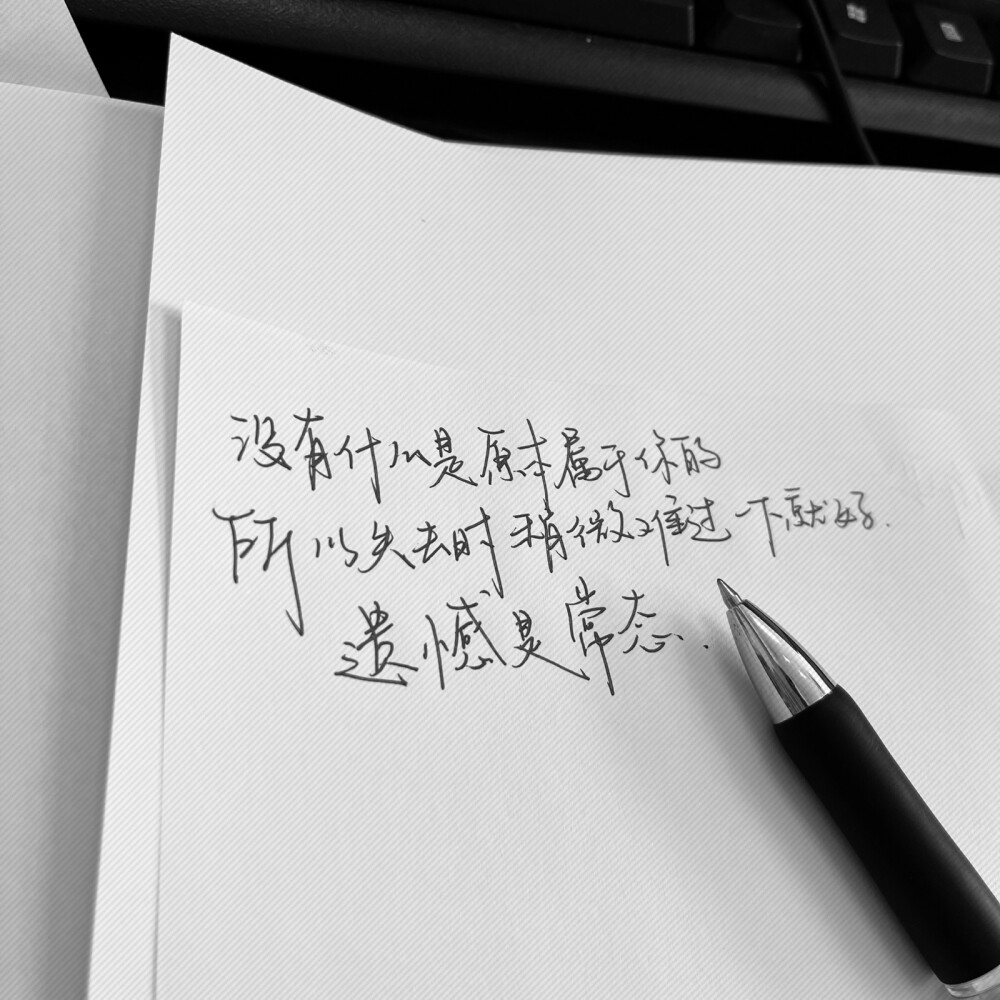 没有什么是原本属于你的
所以失去时稍微难过一下就好.
遗憾是常态.